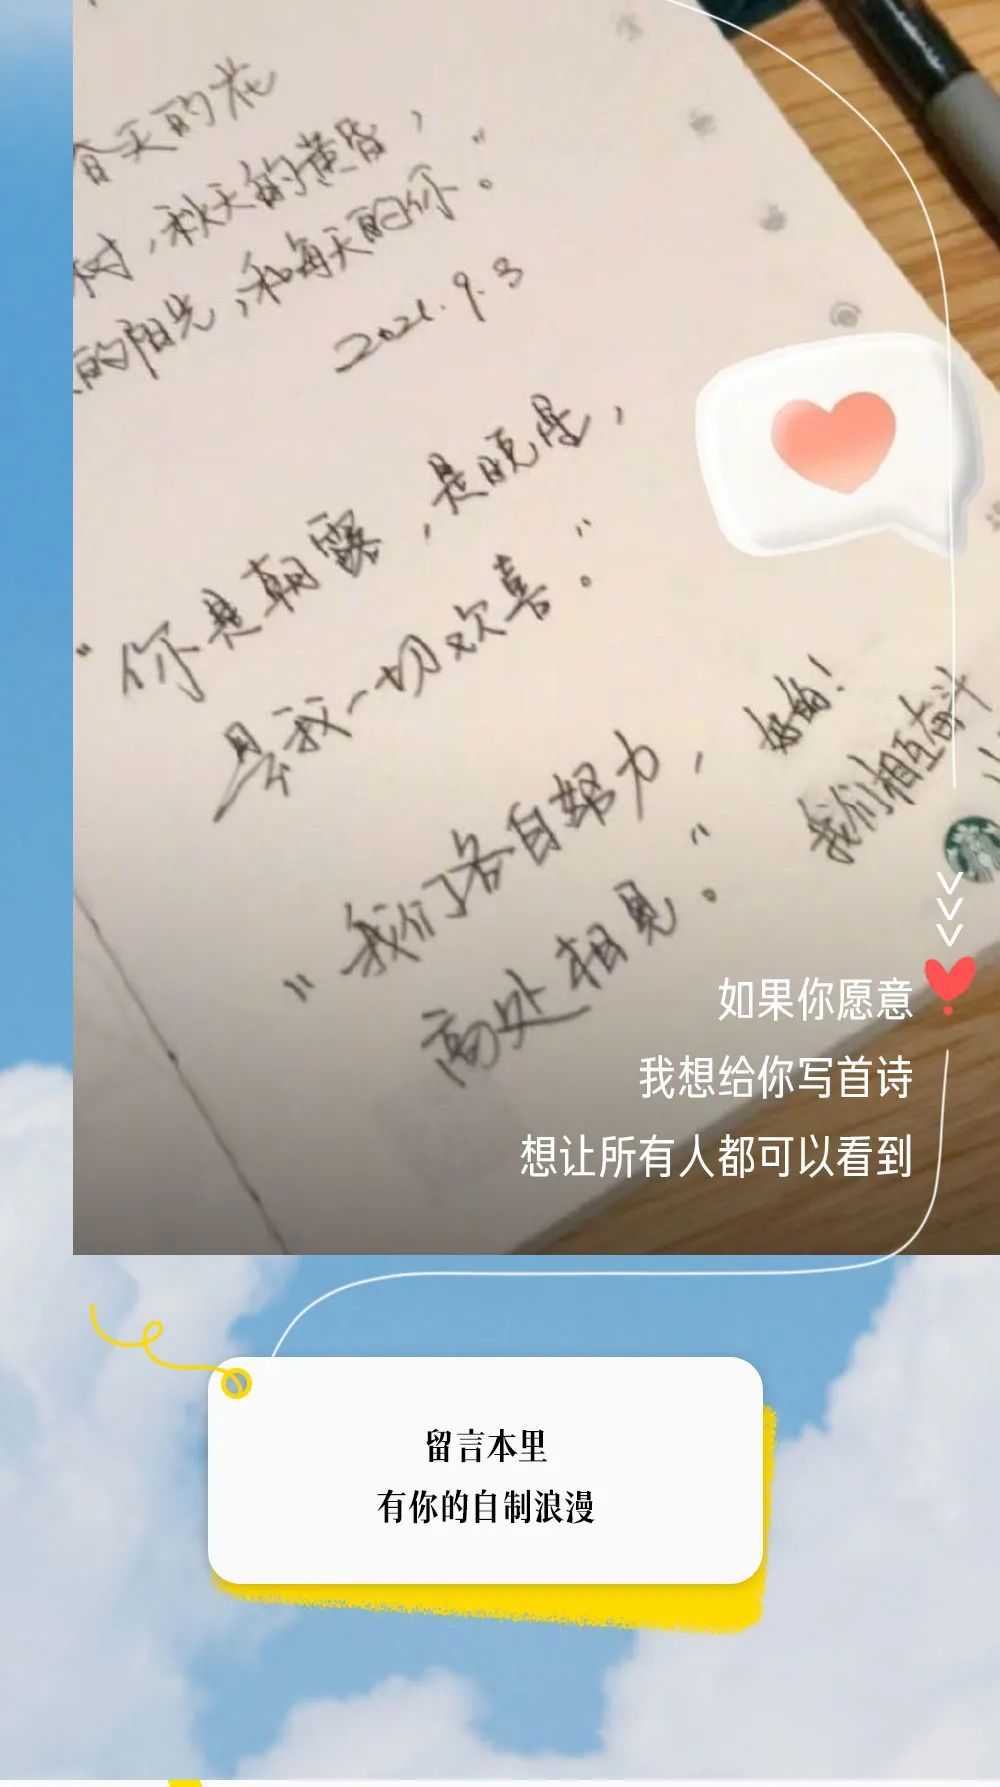 春天的花
树，秋天的黄昏，
的阳光，和每天的你。”
2021.9.3
“你是朝露，是晚星，
是我一切欢喜。”
“我们各自努力，
高处相见。”
好的！
我们相互奋斗
如果你愿意
我想给你写首诗
想让所有人都可以看到
留言本里
有你的自制浪漫